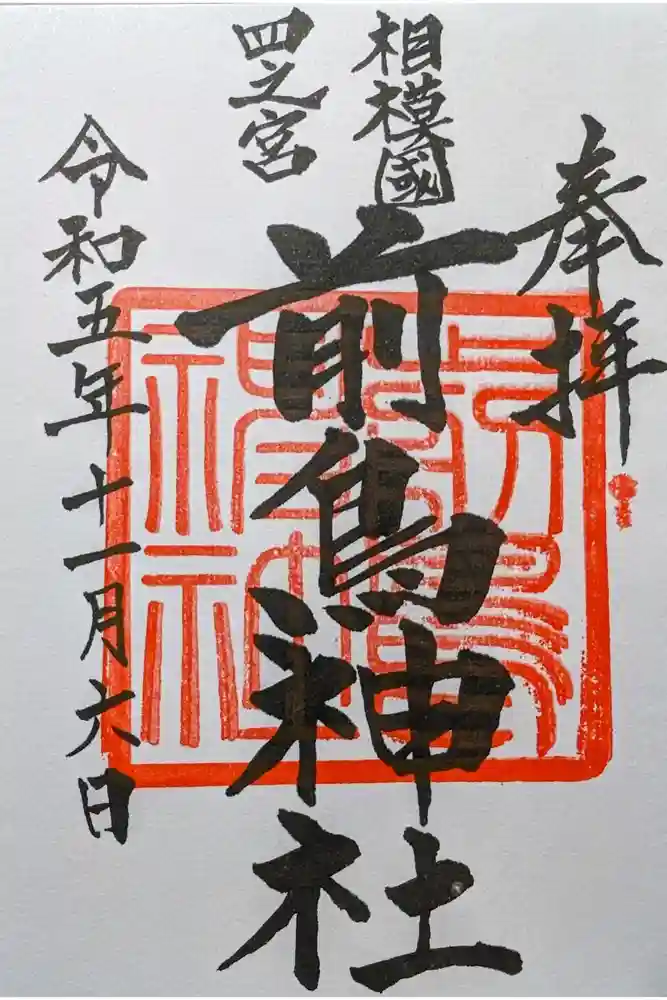 奉拝
相模國
四之宮
前鳥神社
令和五年十一月六日